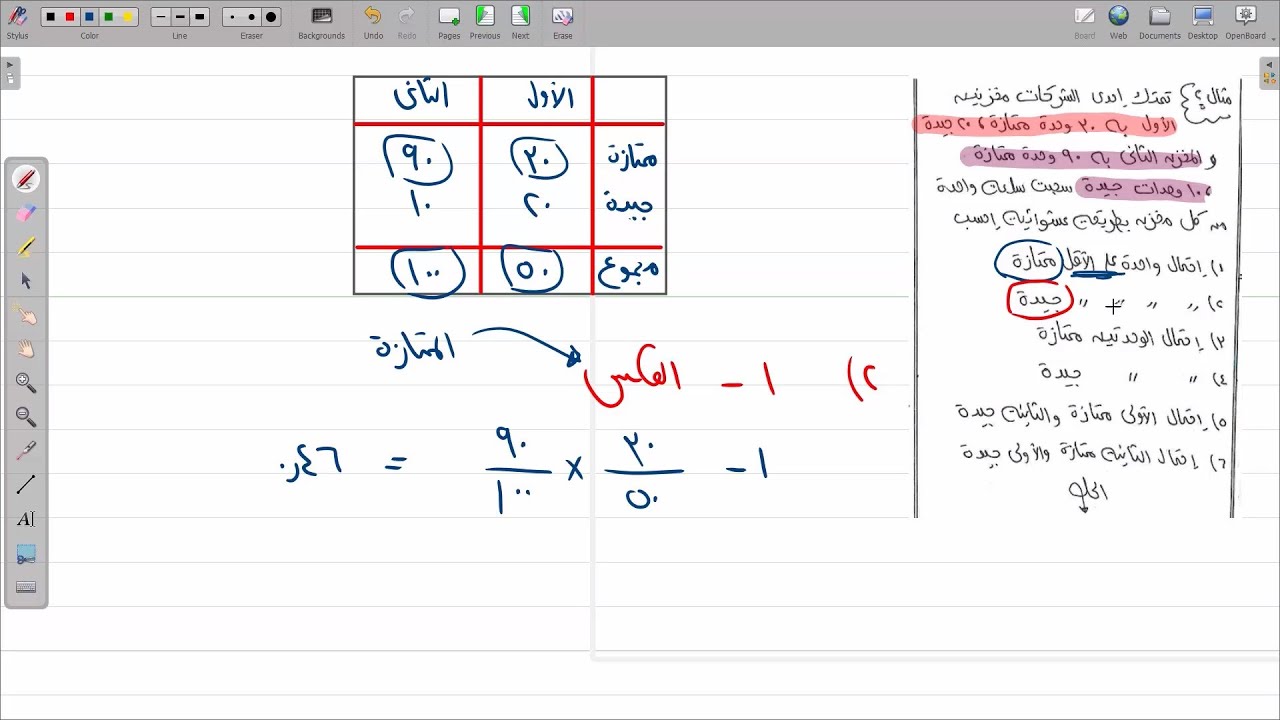 Stylus Color Line Eraser Backgrounds Undo Redo Pages Previous Next Erase Board Web Documents Desktop OpenBoard
الأول الثانى
ممتازة ٣٠ ٩٠
جيدة ٢٠ ١٠
مجموع ٥٠ ١٠٠
٢) ١ - العكس
الممتازة
١ - ٣٠/٥٠ × ٩٠/١٠٠ = ٠,٤٦
مثال ٤ تمتلك إحدى الشركات مخزنين
الأول به ٣٠ وحدة ممتازة ، ٢٠ جيدة
و المخزن الثانى به ٩٠ وحدة ممتازة
، ١٠ وحدات جيدة سحبت سلعة واحدة
من كل مخزن بطريقة عشوائية إحسب
١) إحتمال واحدة على الأقل ممتازة
٢) " " " " جيدة
٣) إحتمال الوحدتين ممتازة
٤) " " جيدة
٥) إحتمال الأولى ممتازة والثانية جيدة
٦) إحتمال الثانية ممتازة والأولى جيدة
الحل